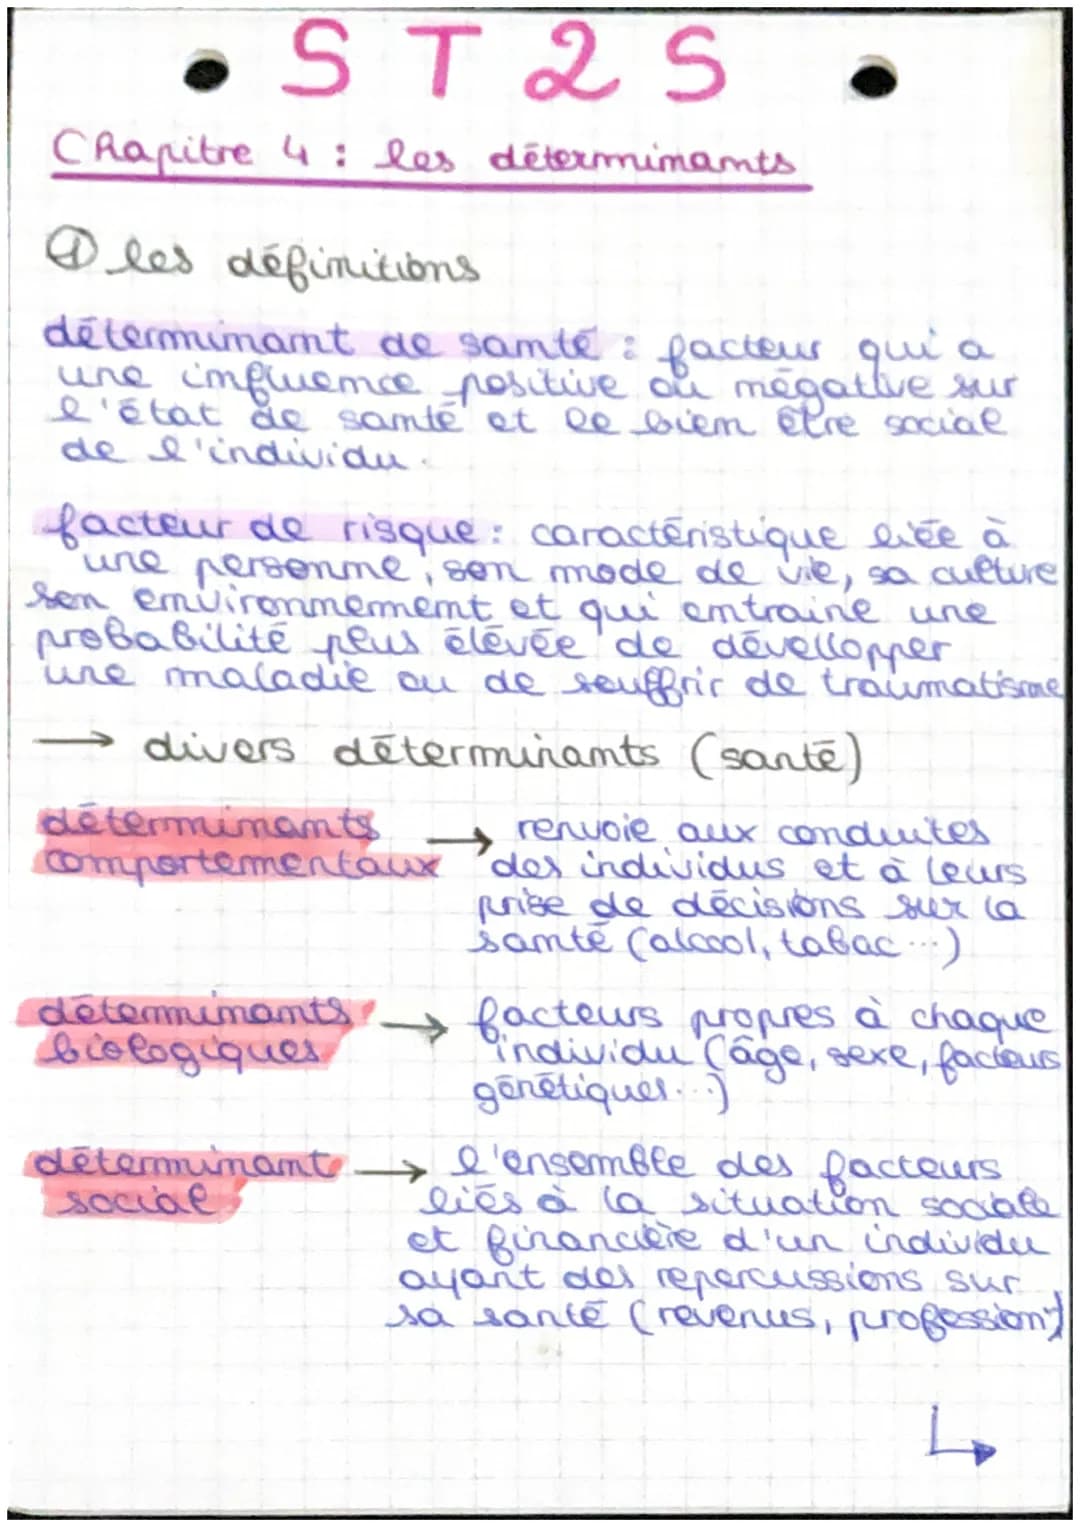 ST2S
Chapitre 4 : les déterminants
① les définitions
déterminant de santé : facteur qui a
une influence positive ou négative sur
l'état de santé et le bien être social
de l'individu.
facteur de risque : caractéristique liée à
une personne, son mode de vie, sa culture
son environnement et qui entraine une
probabilité plus élevée de dévellopper
une maladie ou de souffrir de traumatisme
→ divers déterminants (santé)
déterminants
comportementaux
→ renvoie aux conduites
des individus et à leurs
prise de décisions sur la
santé (alcool, tabac...)
déterminants
biologiques
→ facteurs propres à chaque
individu (âge, sexe, facteurs
génétiques...)
déterminant
social
→ l'ensemble des facteurs
liés à la situation sociale
et financière d'un individu
ayant des repercussions sur
sa santé (revenus, profession)